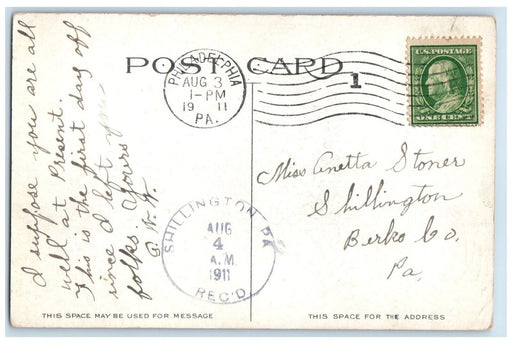 POST CARD
PHILADELPHIA
AUG 3
1-PM
19 11
PA.
1
U.S. POSTAGE
ONE CENT
I suppose you are all
well at Present.
This is the first day off
since I left you
folks. Yours
P. W. F.
Miss Anetta Stoner
Shillington
Berks Co.
Pa.
SHILLINGTON PA
AUG
4
A.M.
1911
REC'D
THIS SPACE MAY BE USED FOR MESSAGE
THIS SPACE FOR THE ADDRESS